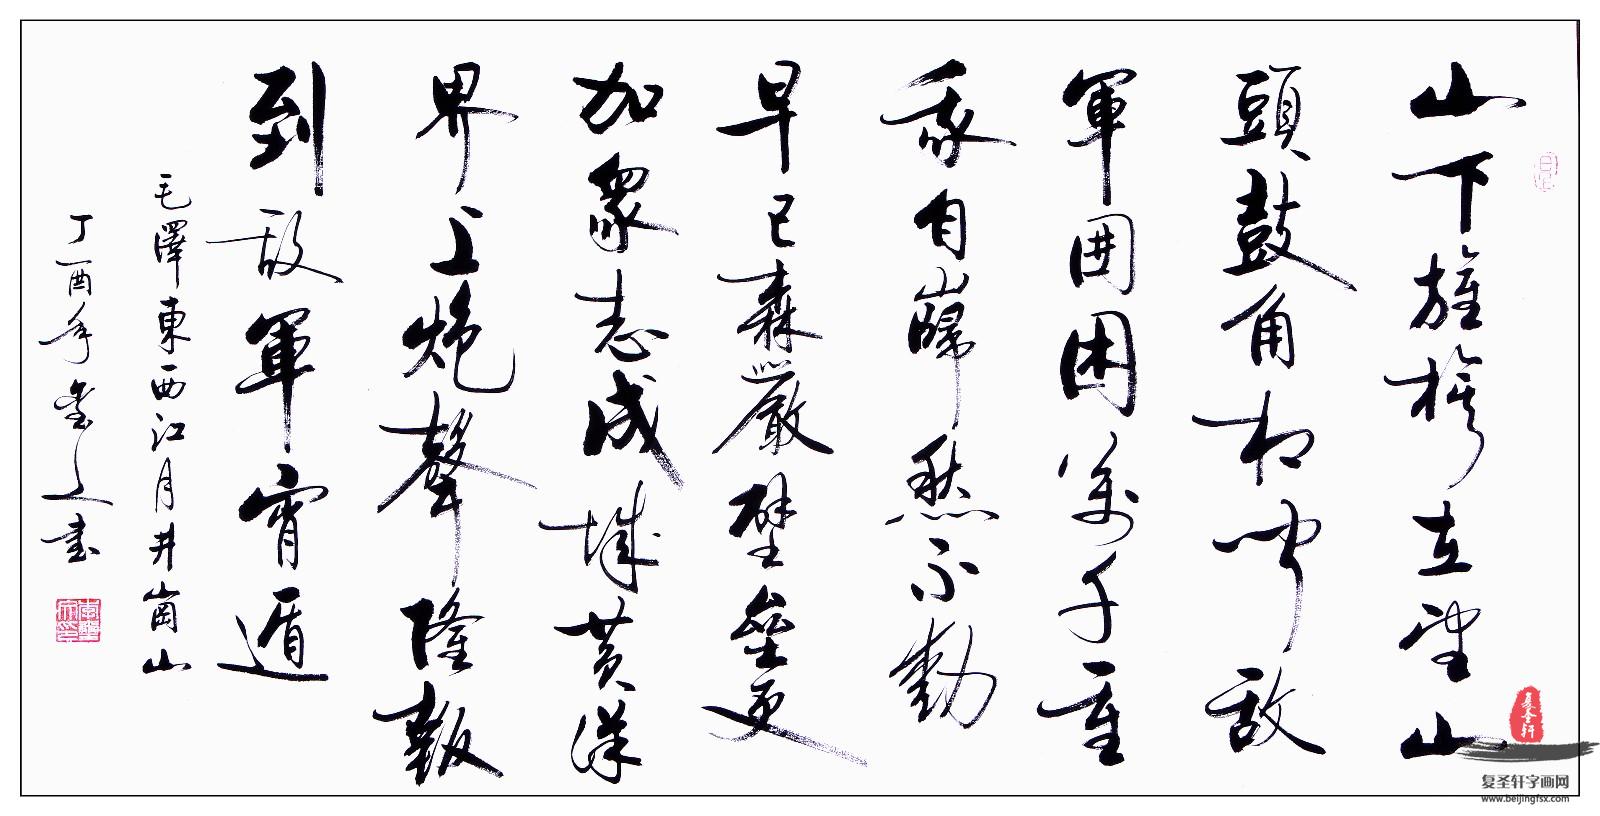 山下旌旗在望山
頭鼓角相聞敌
軍囲困萬千重
我自巋然不動
早已森嚴壁壘更
加衆志成城黄洋
界上炮聲隆報
到敌軍宵遁
毛澤東西江月井崗山
丁酉年之書
复圣轩
复圣轩字画网
www.beijingfsx.com